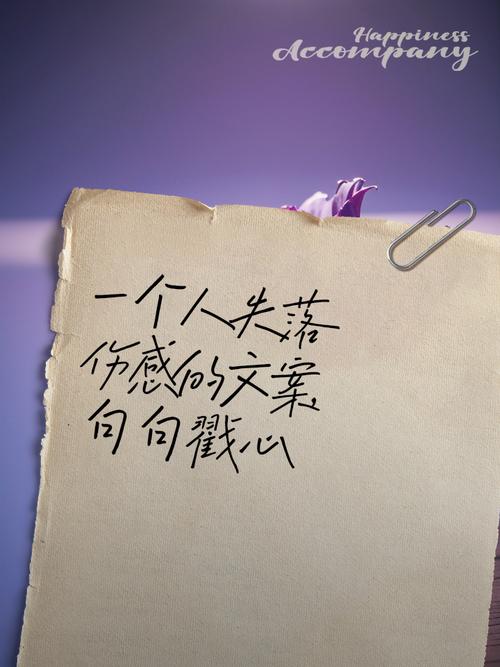 Happiness
Accompany
一个人失落
伤感的文案,
句句戳心